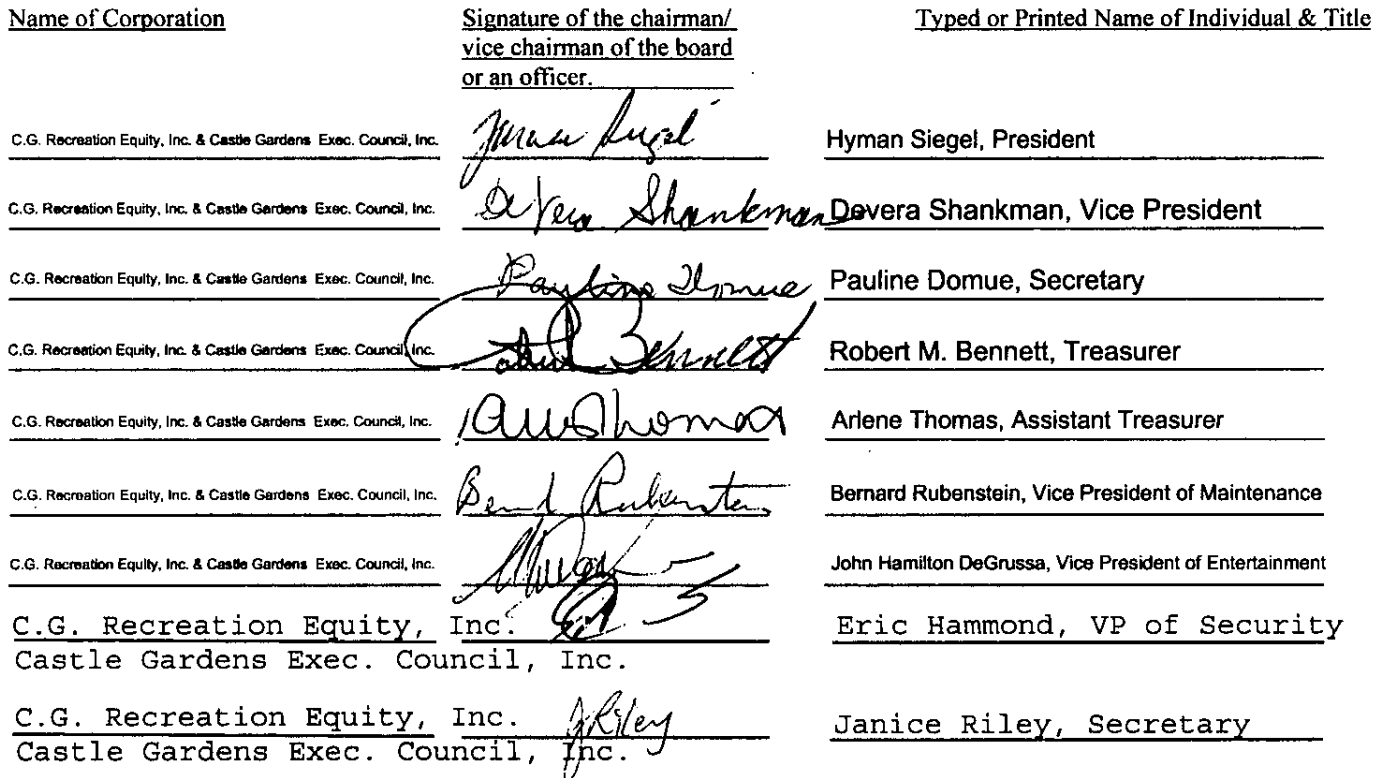 Name of Corporation Signature of the chairman/ Typed or Printed Name of Individual & Title
vice chairman of the board
or an officer.
C.G. Recreation Equity, Inc. & Castle Gardens Exec. Council, Inc. Hyman Siegel, President
C.G. Recreation Equity, Inc. & Castle Gardens Exec. Council, Inc. DeVera Shankman Devera Shankman, Vice President
C.G. Recreation Equity, Inc. & Castle Gardens Exec. Council, Inc. Pauline Domue Pauline Domue, Secretary
C.G. Recreation Equity, Inc. & Castle Gardens Exec. Council, Inc. Bennett Robert M. Bennett, Treasurer
C.G. Recreation Equity, Inc. & Castle Gardens Exec. Council, Inc. Thomas Arlene Thomas, Assistant Treasurer
C.G. Recreation Equity, Inc. & Castle Gardens Exec. Council, Inc. Rubenstein Bernard Rubenstein, Vice President of Maintenance
C.G. Recreation Equity, Inc. & Castle Gardens Exec. Council, Inc. John Hamilton DeGrussa, Vice President of Entertainment
C.G. Recreation Equity, Inc. Eric Hammond, VP of Security
Castle Gardens Exec. Council, Inc.
C.G. Recreation Equity, Inc. J Riley Janice Riley, Secretary
Castle Gardens Exec. Council, Inc.